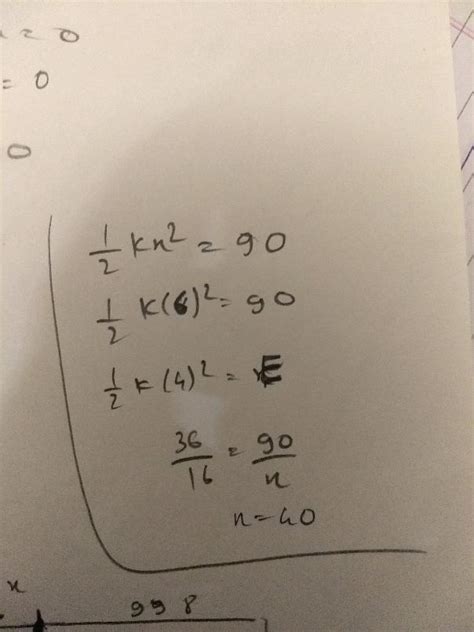 = 0
= 0
0
1/2 kx² = 90
1/2 k(6)² = 90
1/2 k(4)² = E
36/16 = 90/x
x = 40
x
998